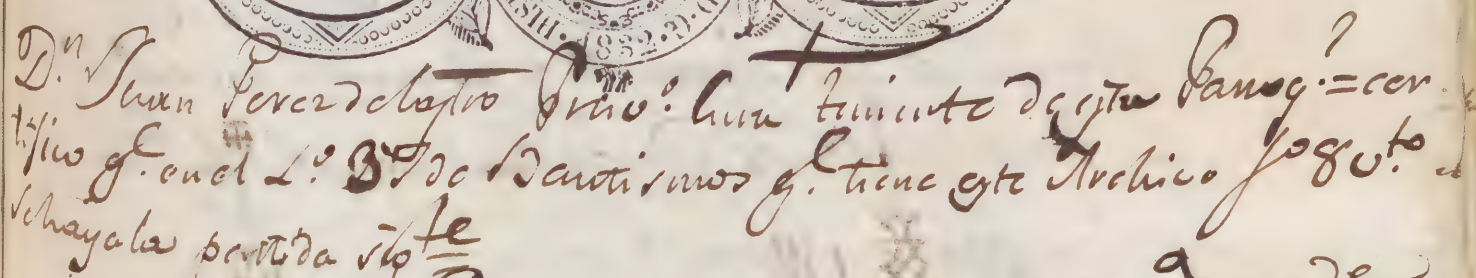 1882
D.n Juan Perez de Castro Presv.o Cura teniente de esta Parroq.a = cer
tifico q.e en el L.o 3.o de Bautismos q.e tiene este Archivo f.o 80 v.to
se haya la partida sig.te